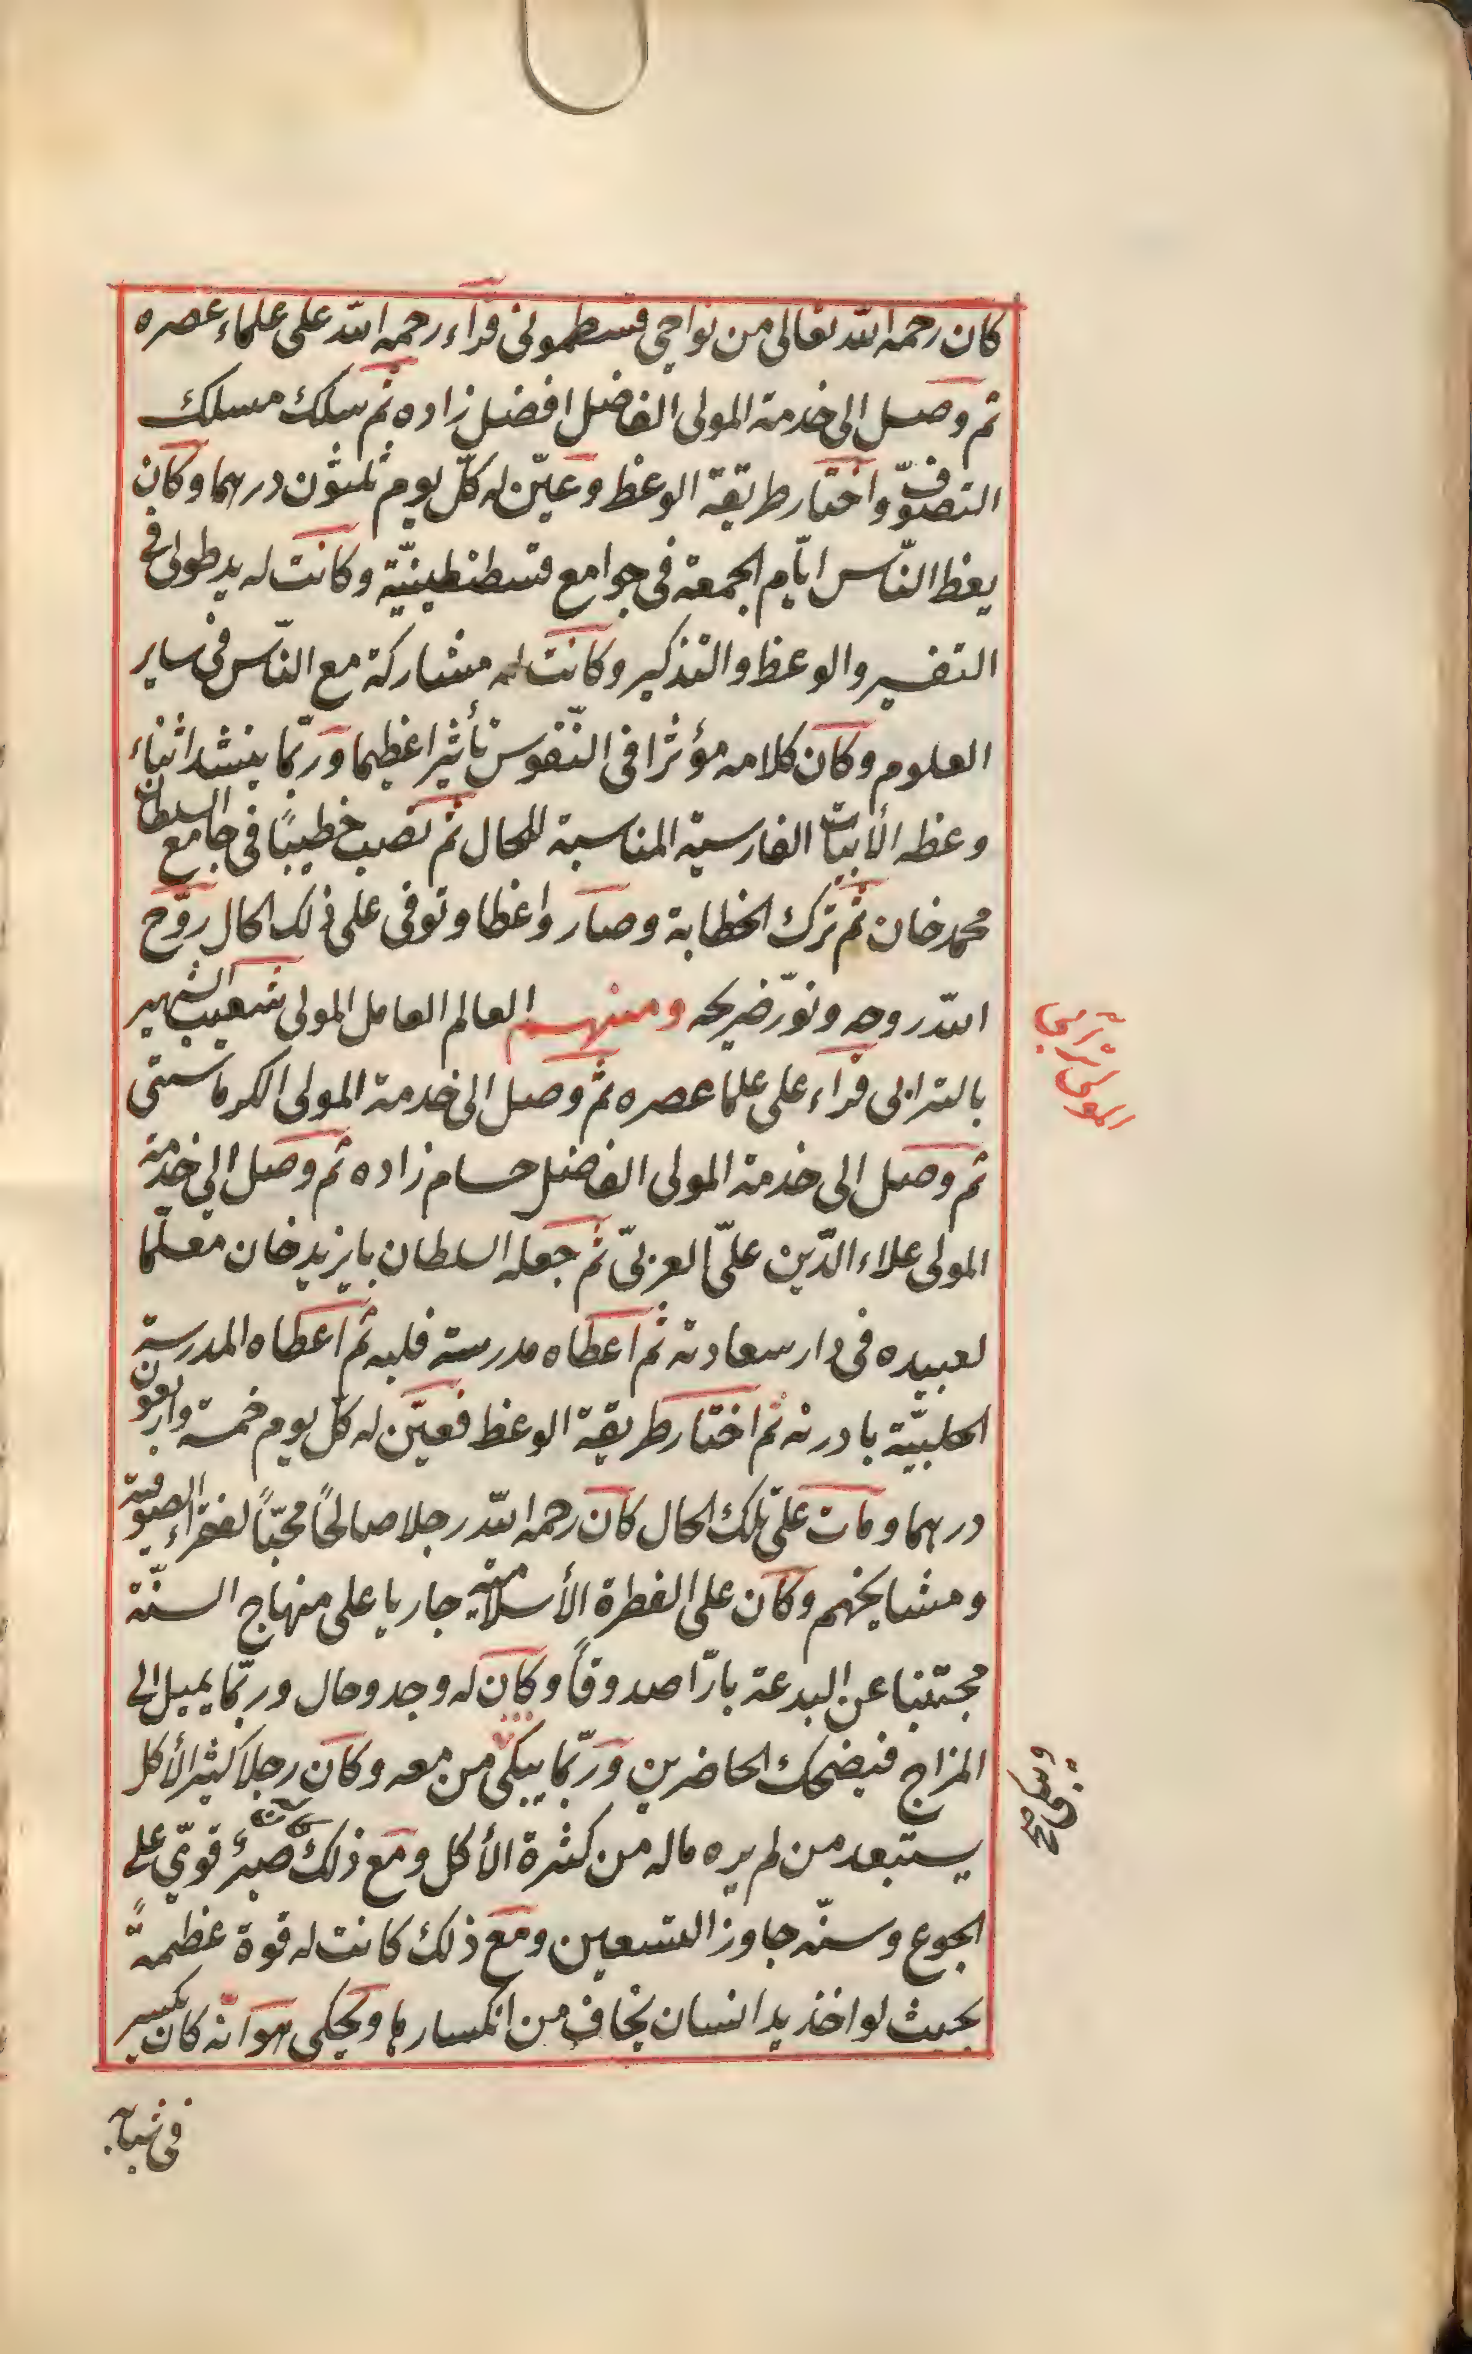 كان رحمه الله تعالى من نواحي قسطموني قراء رحمه الله على علماء عصره
ثم وصل الى خدمة المولى الفاضل افضل زاده ثم سلك مسلك
التصوّف واختار طريقة الوعظ وعيّن له كلّ يوم ثلثون درهما وكان
يعظ النّاس ايّام الجمعة في جوامع قسطنطينيّة وكانت له يد طولى في
التفسير والوعظ والتذكير وكانت له مشاركة مع النّاس في ساير
العلوم وكان كلامه مؤثرا في النّفوس تأثيرا عظيما وربّما ينشد اثناء
وعظه الأبيات الفارسية المناسبة للحال ثم نصب خطيبًا في جامع السلطان
محمد خان ثم ترك الخطابة وصار واعظا وتوفى على ذلك الحال روّح
الله روحه ونوّر ضريحه ومنهم العالم العامل المولى شعيب الشهير
بالترابى قراء على علما عصره ثم وصل الى خدمة المولى الكرماستى
ثم وصل الى خدمة المولى الفاضل حسام زاده ثم وصل الى خدمة
المولى علاء الدّين علىّ العربىّ ثم جعله السلطان بايزيد خان معلّما
لعبيده في دار سعادته ثم اعطاه مدرسة فلبه ثم اعطاه المدرسة
الحلبيّة بادرنه ثم اختار طريقة الوعظ فعيّن له كلّ يوم خمسة واربعون
درهما ومات على تلك الحال كان رحمه الله رجلا صالحًا محبّاً لفقراء الصوفية
ومشايخهم وكان على الفطرة الأسلامية جاريا على منهاج السنّة
مجتنبا عن البدعة بارّا صدوقاً وكان له وجد وحال وربّما يميل الى
المزاح فيضحك الحاضرين وربّما يبكى من معه وكان رجلا كثير الأكل
يستبعد من لم يره ماله من كثرة الأكل ومع ذلك كان له صبرٌ قوىّ على
الجوع وسنّه جاوز التسعين ومع ذلك كانت له قوة عظيمةً
بحيث لو اخذ يد انسان يخاف من انكسارها ويحكى هو انّه كان يكسر
في شبابه
المولى ترابى